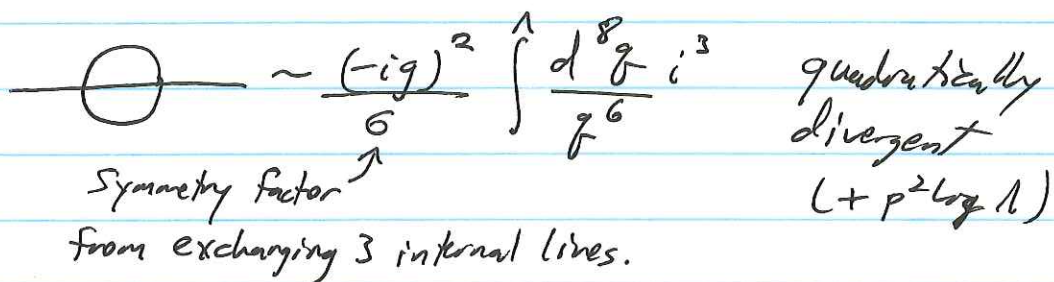 ~ (-ig)² / 6 ∫^Λ d⁸q / q⁶ i³ quadratically
divergent
(+ p² log Λ)
Symmetry factor
from exchanging 3 internal lines.